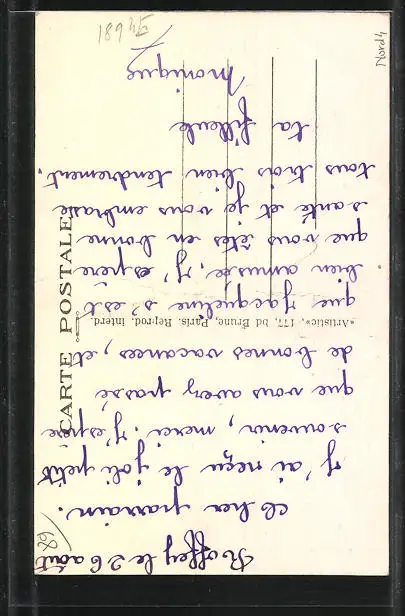 Roffey le 26 août
Cher parrain.
J'ai reçu le joli petit
souvenir, merci. J'espère
que vous avez passé
de bonnes vacances, et
que Jacqueline s'est
bien amusée. J'espère
que vous êtes en bonne
santé et je vous embrasse
tous trois bien tendrement.
ta filleule
Monique
CARTE POSTALE
«Artistic», 177, bd Brune, Paris. Reprod. interd.
Nord 4